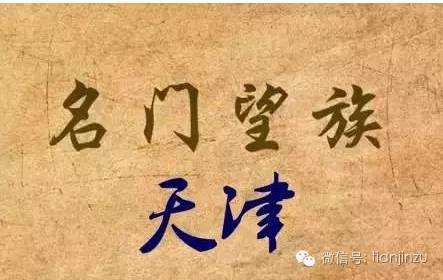 名门望族
天津
微信号: tianjinzu